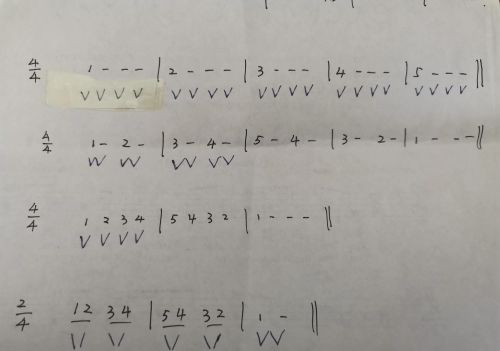 4/4 1 - - - | 2 - - - | 3 - - - | 4 - - - | 5 - - - ||
V V V V V V V V V V V V V V V V V V V V
4/4 1 - 2 - | 3 - 4 - | 5 - 4 - | 3 - 2 - | 1 - - - ||
VV VV VV VV
4/4 1 2 3 4 | 5 4 3 2 | 1 - - - ||
V V V V
2/4 12 34 | 54 32 | 1 - ||
V V V V VV